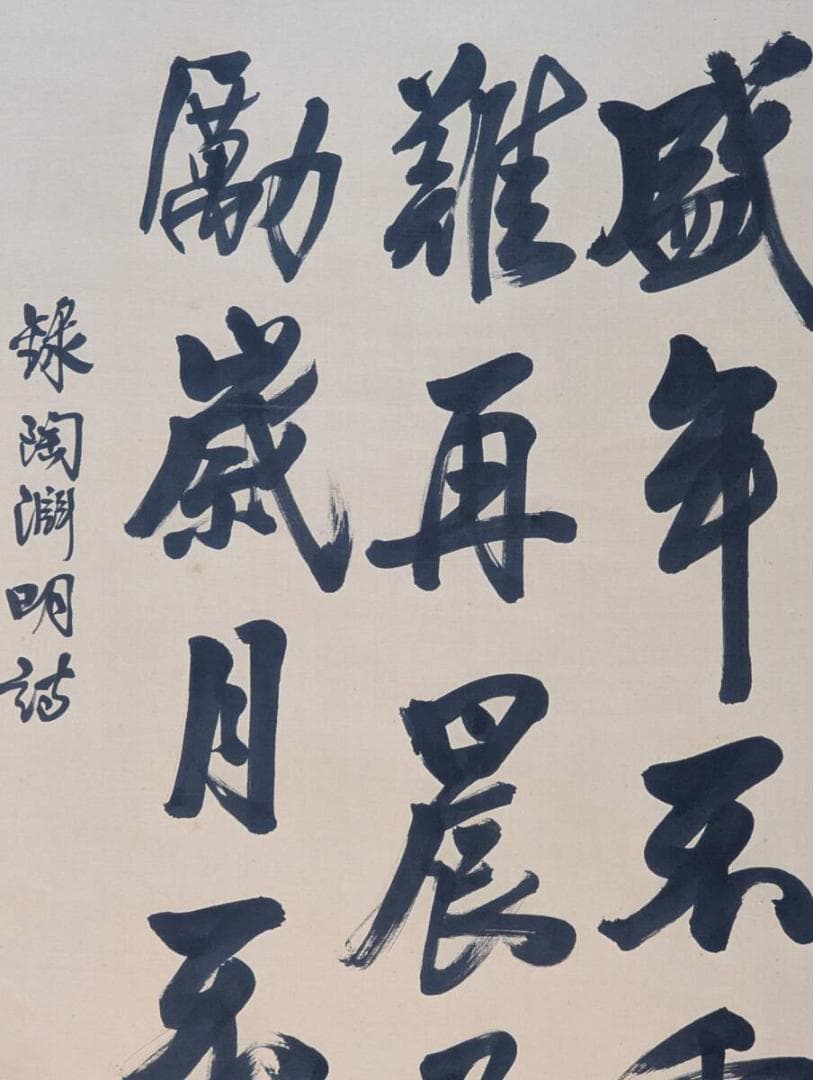 盛年不重
難再晨及
勵歲月不
錄陶淵明詩